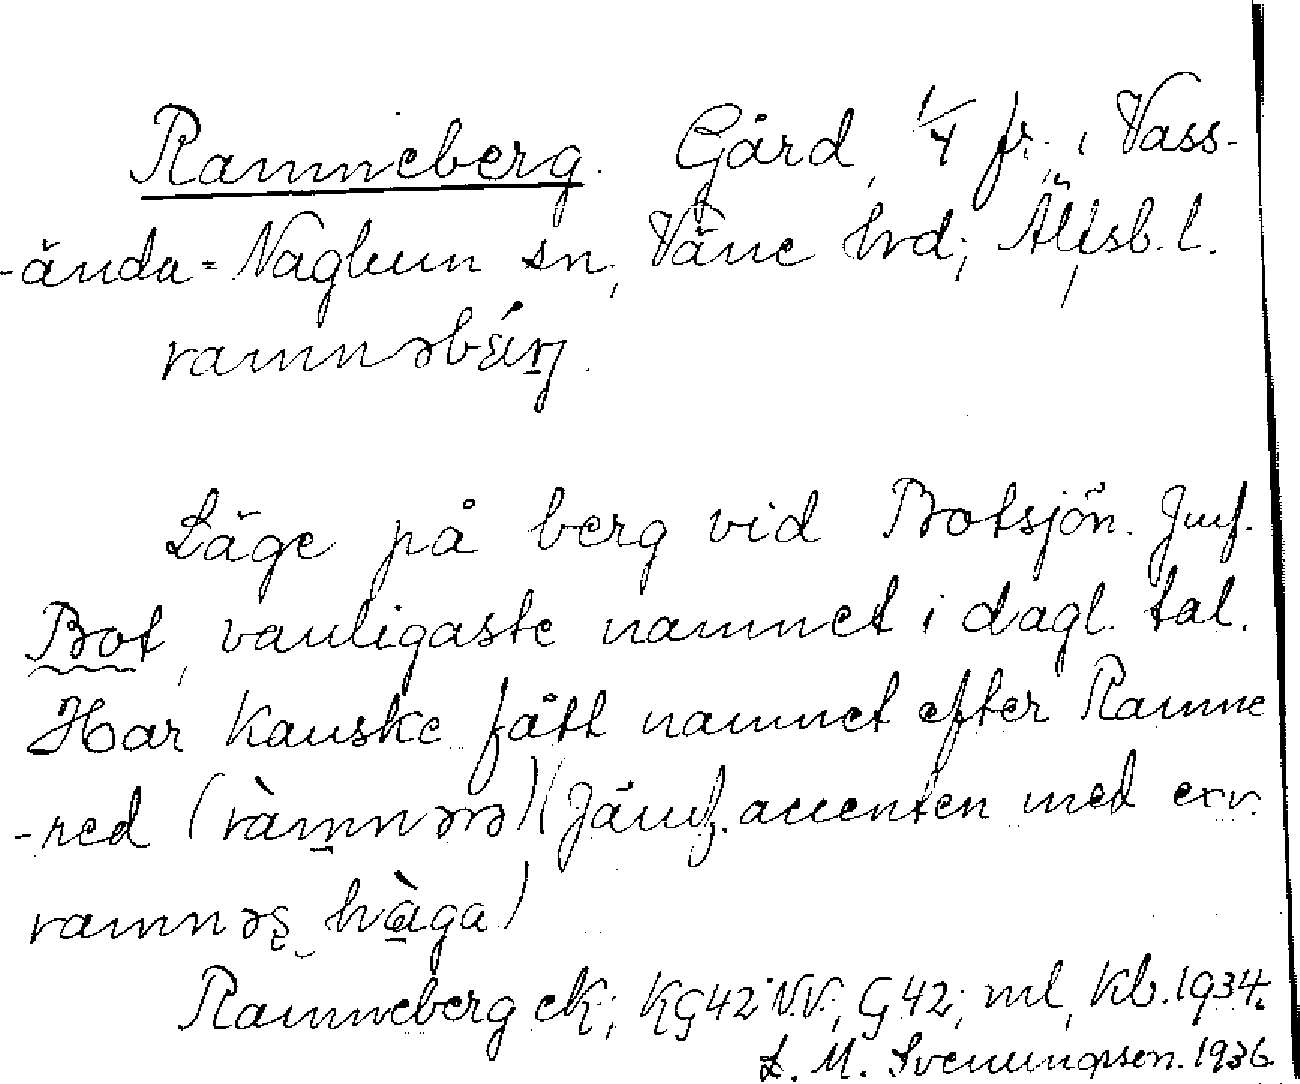 Ramneberg. Gård, 1/4 fr., i Vass-
-ända-Naglum sn, Väne hrd, Älfsb. l.
ramnəbærj.
Läge på berg vid Botsjön. Jmf.
Bot, vanligaste namnet i dagl. tal.
Har kanske fått namnet efter Ramne
-red (ràmnərə) (Jämf. accenten med ex.
ramnəs hàga)
Ramneberg ek; KG42 V.V; G42; ml, kb. 1934.
L. M. Svenungsson. 1936